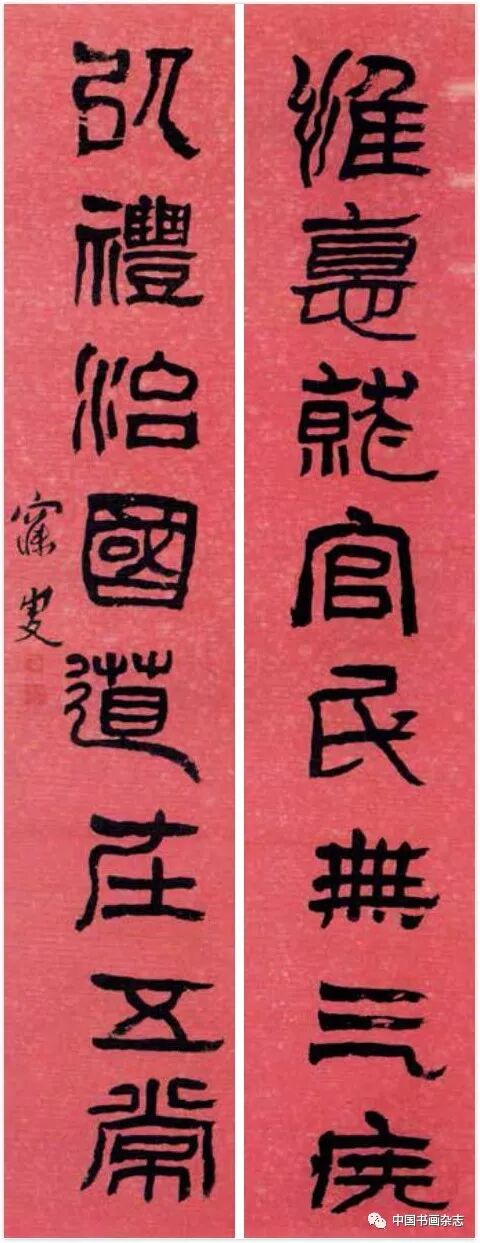 惟悳就官民無三疾
以禮治國道在五常
寐叟
中国书画杂志